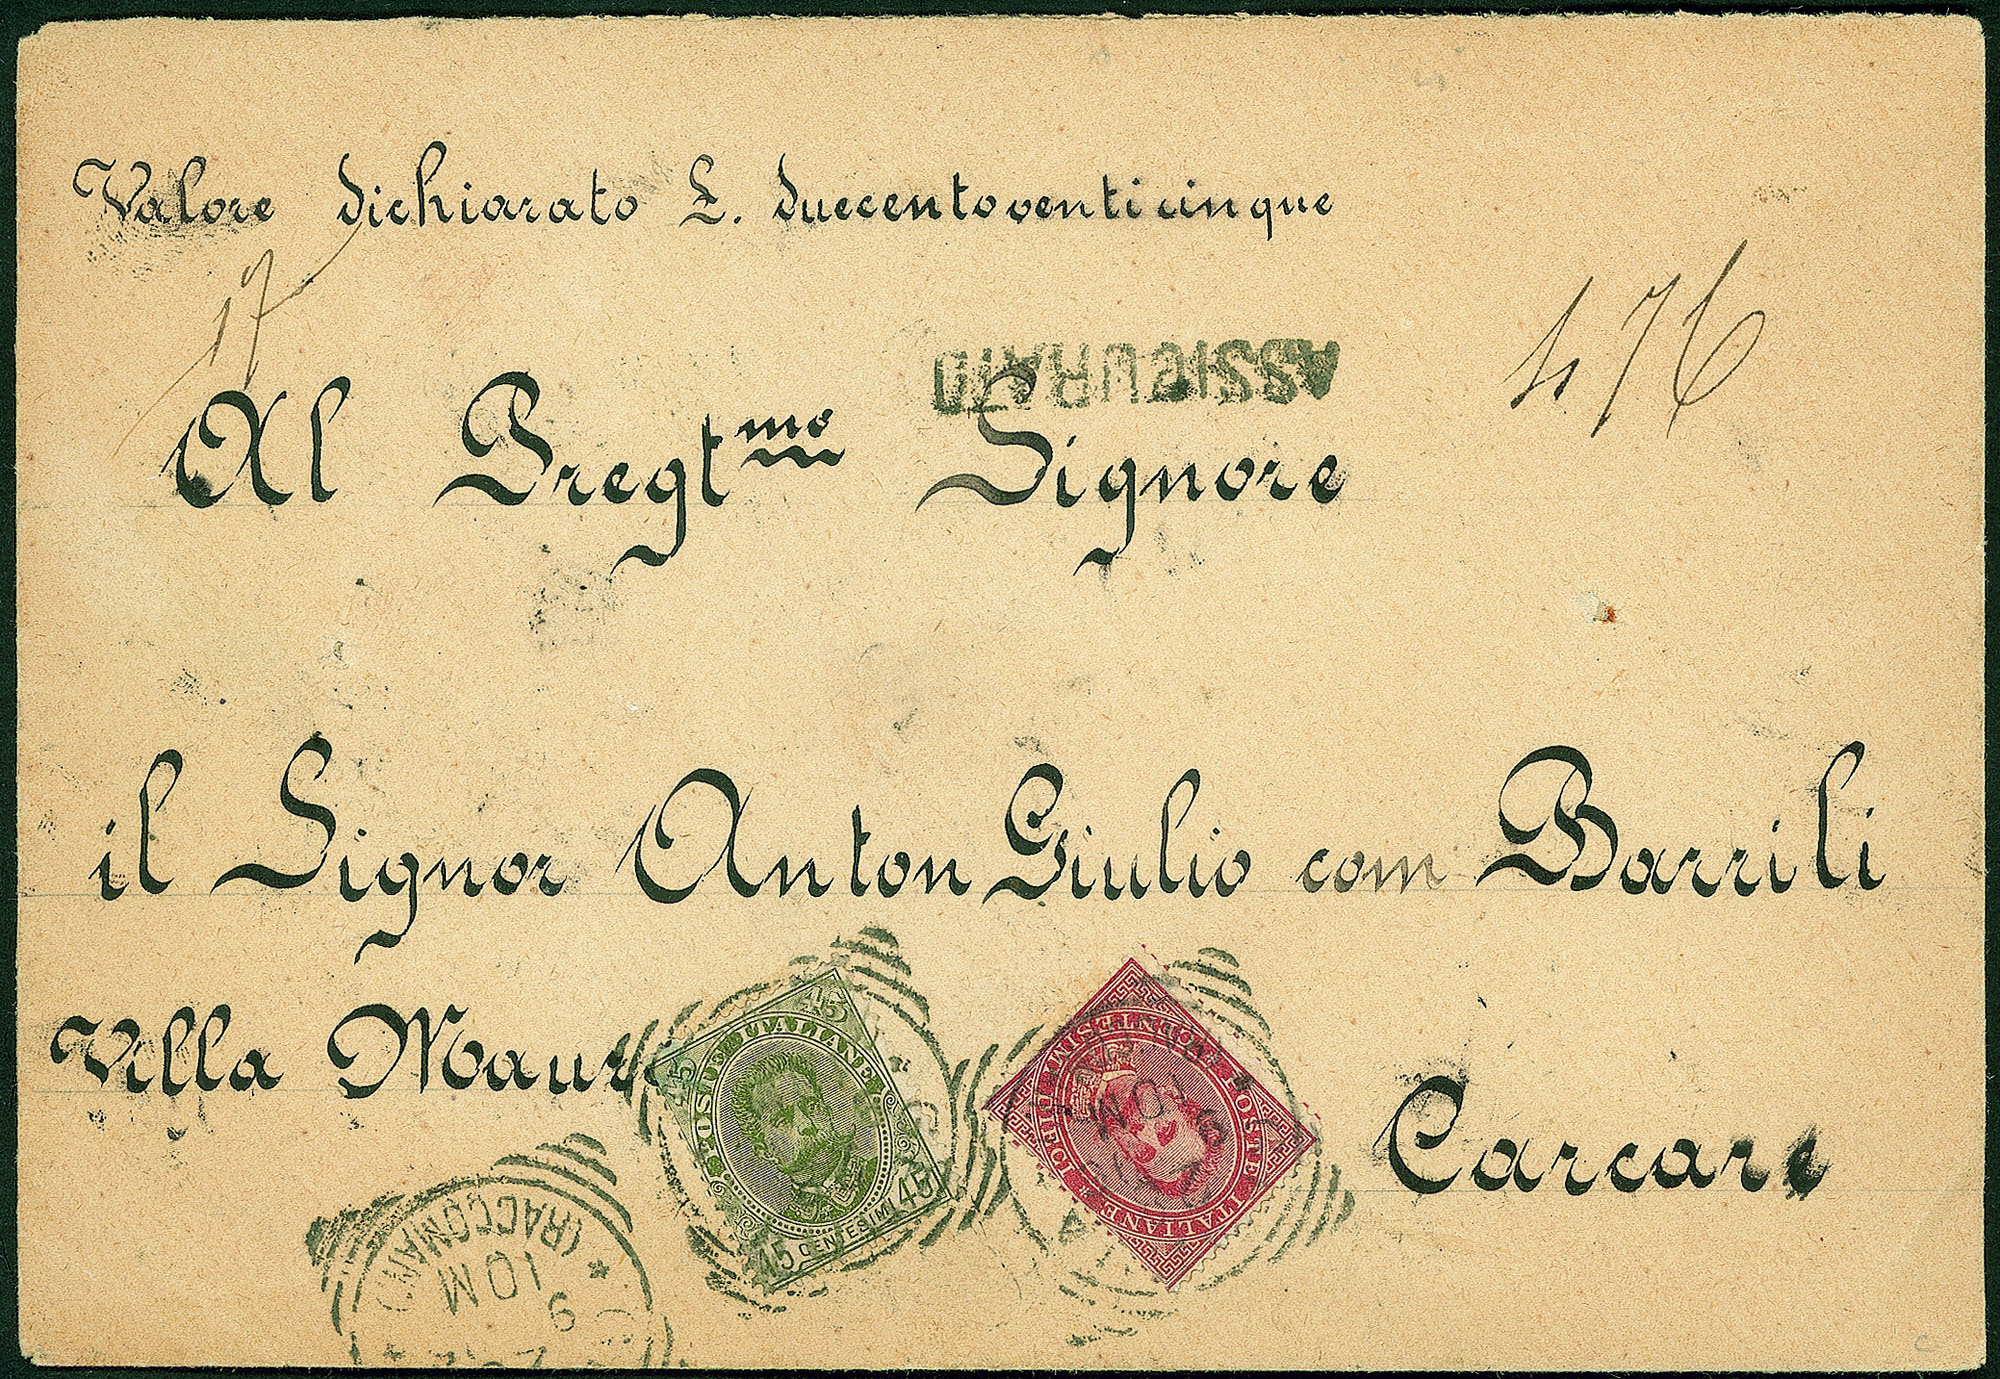 Valore dichiarato £. duecentoventicinque
17
476
ASSICURATO
Al Pregt.mo Signore
il Signor Anton Giulio com Barrili
Villa
Carcare
POSTE ITALIANE
45 45
45 CENTESIMI 45
POSTE ITALIANE
DIECI CENTESIMI
9
10 M
(RACCONIGI)
10 M
9